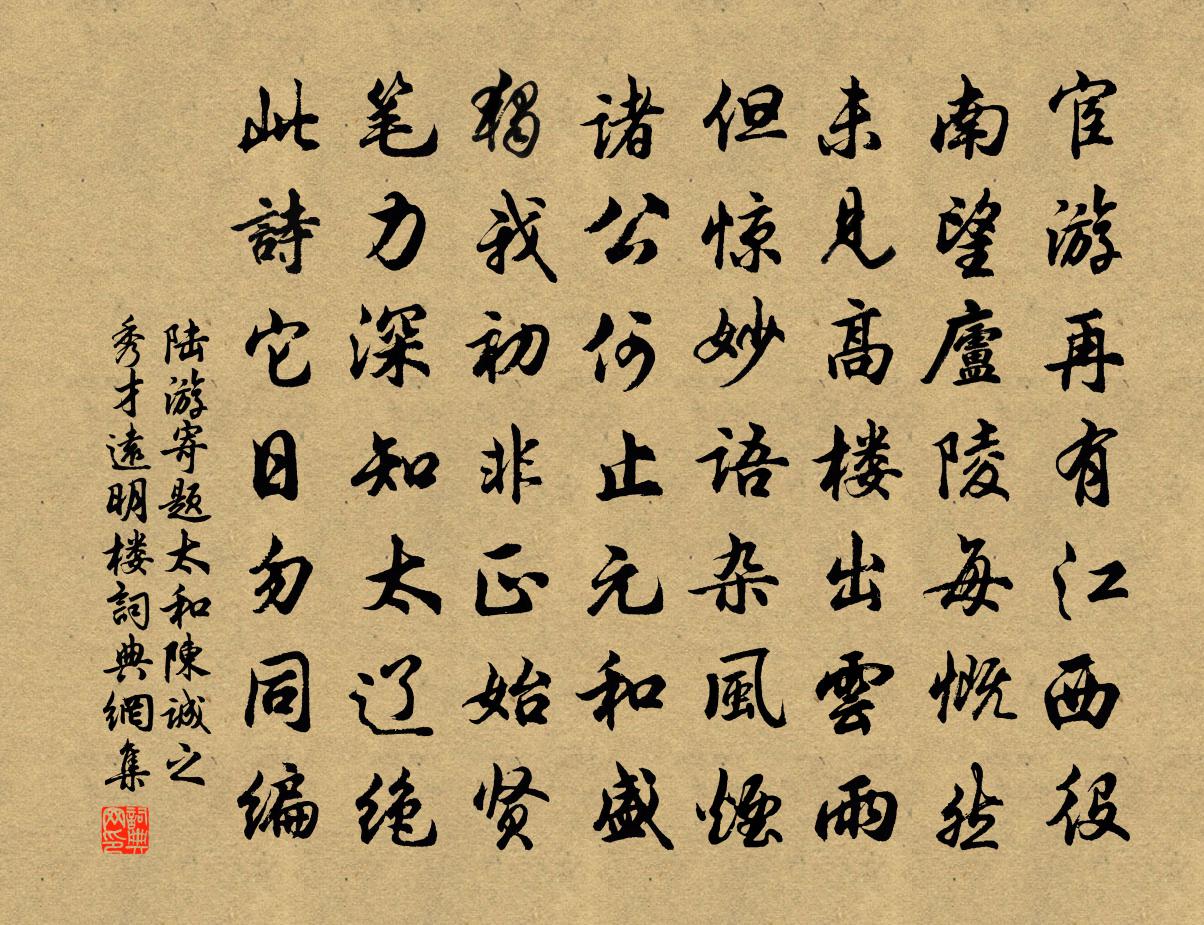 宦游再有江西役
南望廬陵每慨然
未見高楼出雲雨
但惊妙语杂風煙
诸公何止元和盛
独我初非正始贤
笔力深知太辽绝
此詩它日勿同编
陆游寄题太和陳诚之
秀才遠明楼詞典網集
詞典
网印